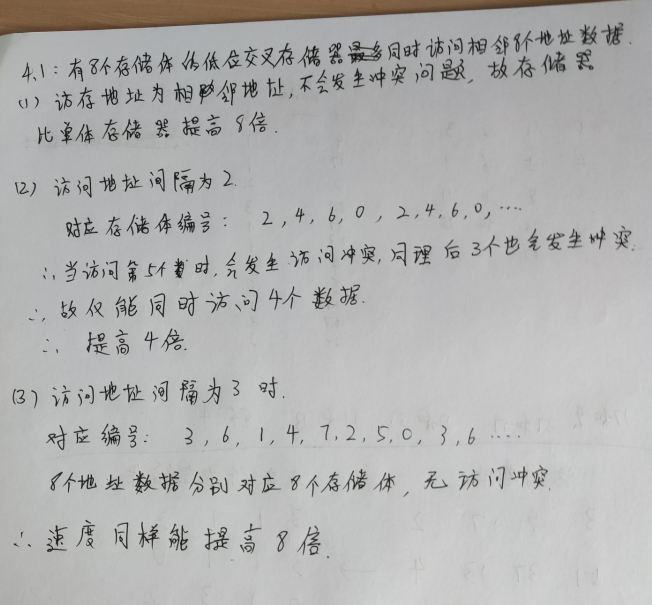 4.1：有8个存储体的低位交叉存储器最多同时访问相邻8个地址数据.
(1) 访存地址为相邻地址,不会发生冲突问题, 故存储器
比单体存储器提高8倍.
(2) 访问地址间隔为2.
对应存储体编号： 2, 4, 6, 0, 2, 4, 6, 0, ....
∴当访问第5个时,会发生访问冲突,同理后3个也会发生冲突.
∴ 故仅能同时访问4个数据.
∴ 提高4倍.
(3) 访问地址间隔为3时.
对应编号： 3, 6, 1, 4, 7, 2, 5, 0, 3, 6 ....
8个地址数据分别对应8个存储体, 无访问冲突.
∴ 速度同样能提高8倍.